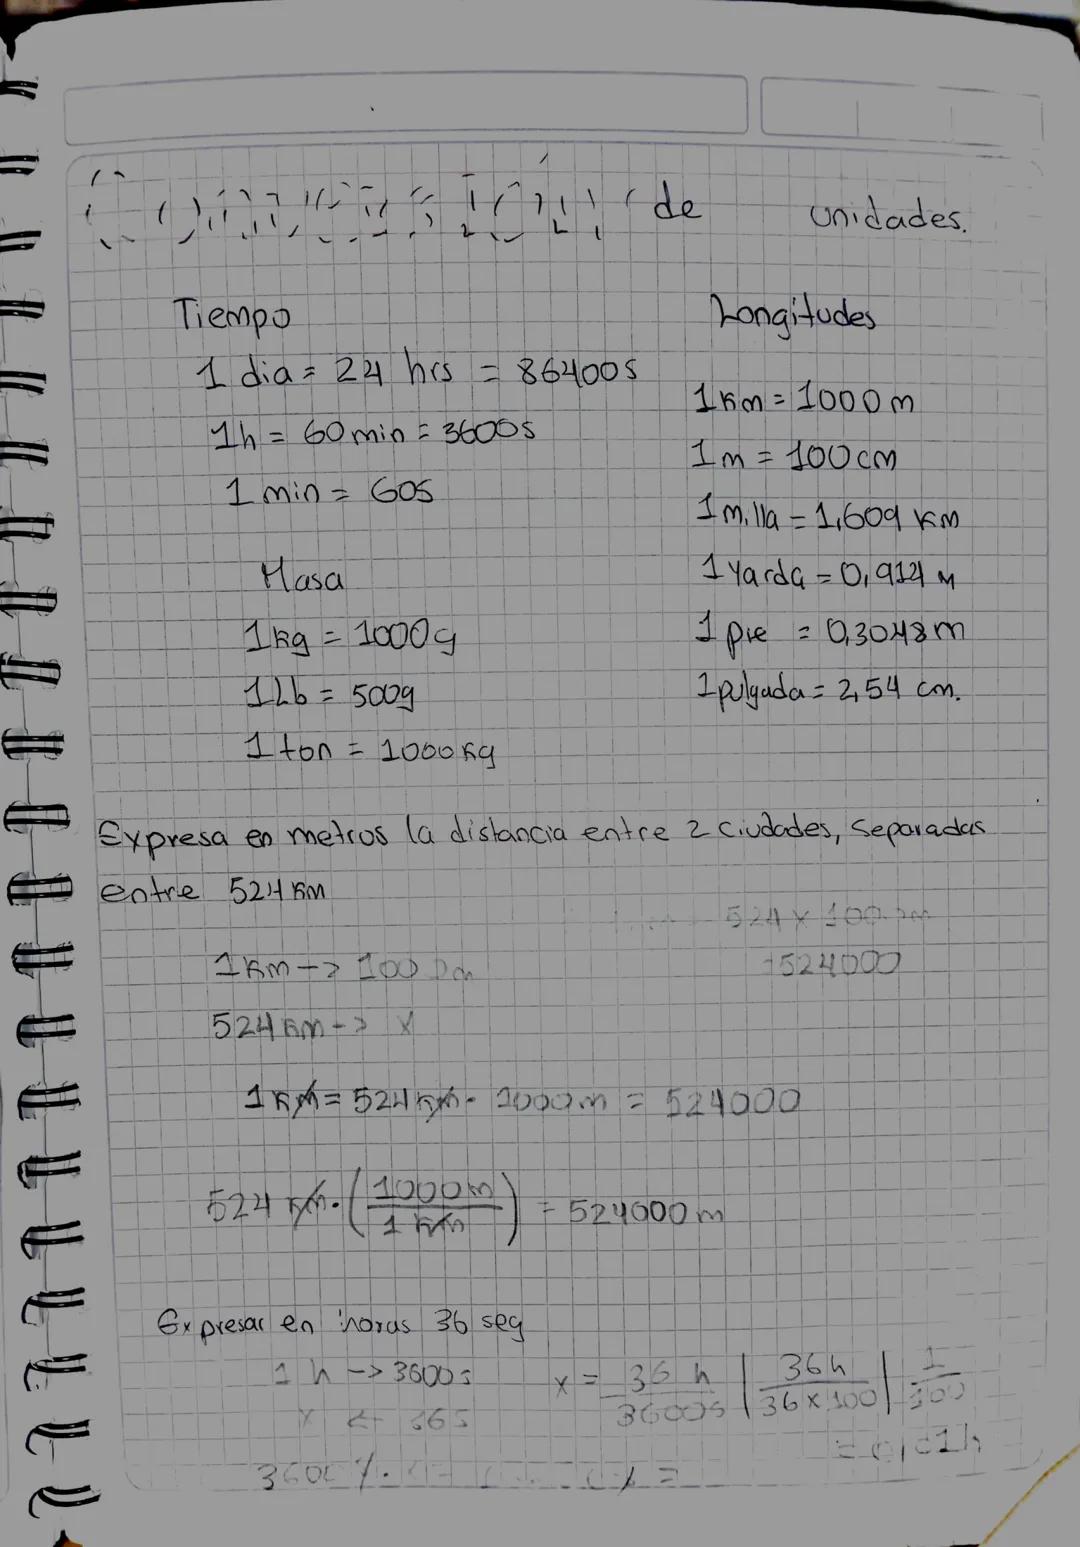 Conversión de unidades.
Tiempo
1 dia = 24 hrs = 86400s
1h = 60 min = 3600s
1 min = 60s
Masa
1kg = 1000g
1Lb = 500g
1 ton = 1000kg
Longitudes
1km = 1000m
1m = 100cm
1milla = 1,609 km
1 Yarda = 0,914 M
1 pie = 0,3048m
1pulgada = 2,54 cm.
Expresa en metros la distancia entre 2 ciudades, separadas
entre 524 km
1km -> 1000m
524 km -> x
524 x 1000m
=524000
1km = 524km · 1000m = 524000
524 km · (1000m / 1 km) = 524000m
Expresar en horas 36 seg
1 h -> 3600s
x <- 36s
x = 36 h / 3600s | 36h / 36x100 | 1 / 100
= 0,01h